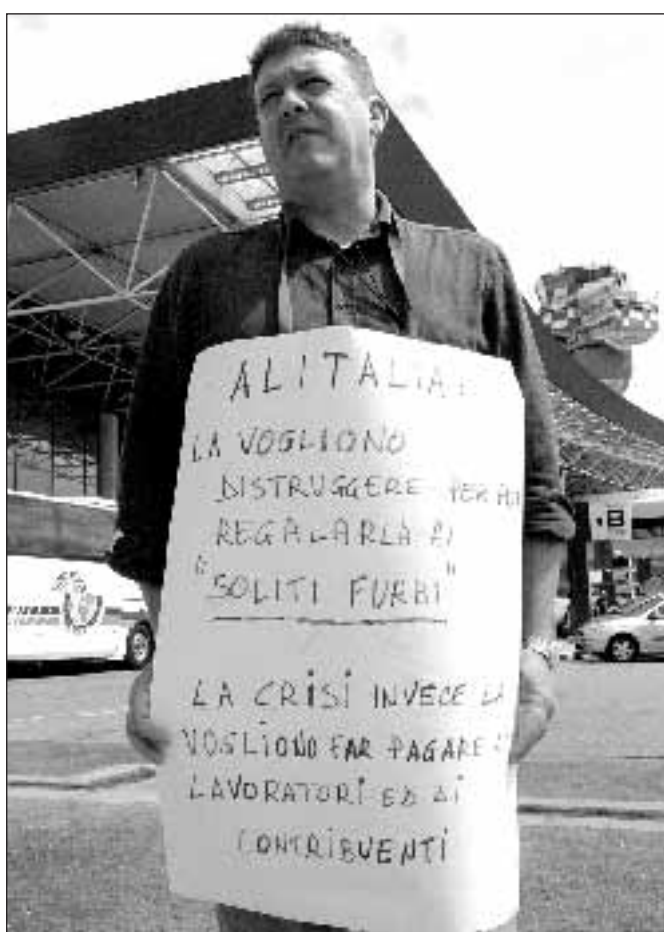 ALITALIA:
LA VOGLIONO
DISTRUGGERE PER POI
REGALARLA AI
"SOLITI FURBI"
LA CRISI INVECE LA
VOGLIONO FAR PAGARE AI
LAVORATORI ED AI
CONTRIBUENTI
B